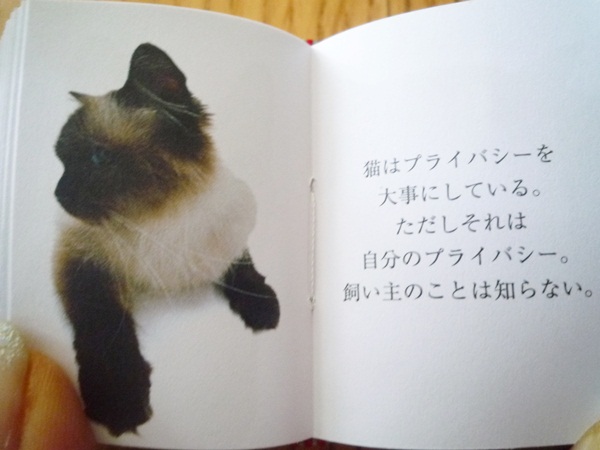 猫はプライバシーを
大事にしている。
ただしそれは
自分のプライバシー。
飼い主のことは知らない。